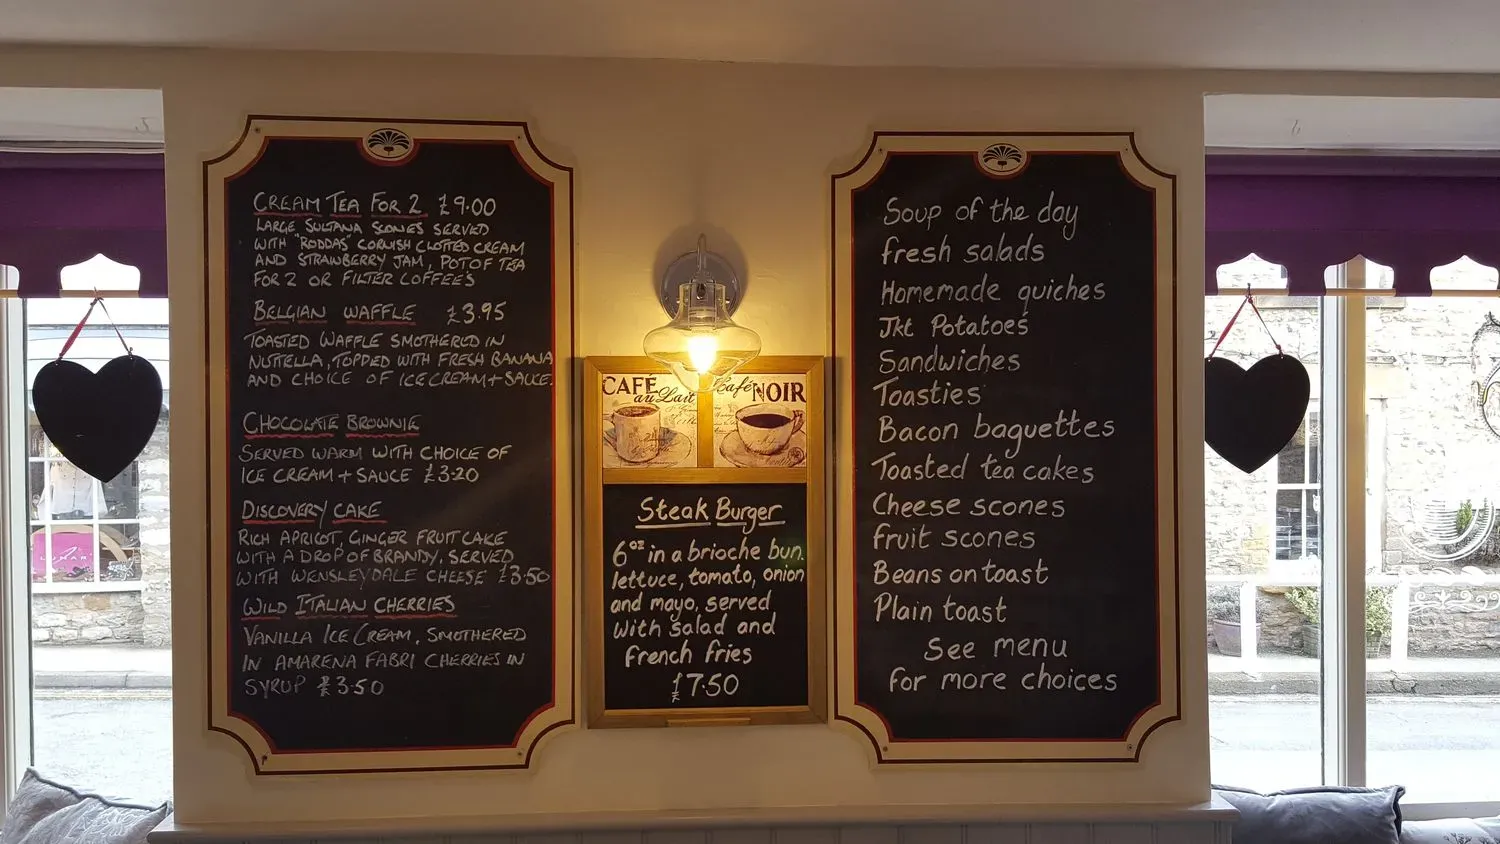 CREAM TEA FOR 2 £9.00
LARGE SULTANA SCONES SERVED
WITH "RODDAS" CORNISH CLOTTED CREAM
AND STRAWBERRY JAM, POT OF TEA
FOR 2 OR FILTER COFFEE'S
BELGIAN WAFFLE £3.95
TOASTED WAFFLE SMOTHERED IN
NUTTELLA, TOPPED WITH FRESH BANANA
AND CHOICE OF ICE CREAM + SAUCE.
CHOCOLATE BROWNIE
SERVED WARM WITH CHOICE OF
ICE CREAM + SAUCE £3.20
DISCOVERY CAKE
RICH APRICOT, GINGER FRUIT CAKE
WITH A DROP OF BRANDY, SERVED
WITH WENSLEYDALE CHEESE £3.50
WILD ITALIAN CHERRIES
VANILLA ICE CREAM, SMOTHERED
IN AMARENA FABRI CHERRIES IN
SYRUP £3.50
CAFÉ au Lait
Café NOIR
Steak Burger
6oz in a brioche bun,
lettuce, tomato, onion
and mayo, served
with salad and
french fries
£7.50
Soup of the day
fresh salads
Homemade quiches
Jkt Potatoes
Sandwiches
Toasties
Bacon baguettes
Toasted tea cakes
Cheese scones
fruit scones
Beans on toast
Plain toast
See menu
for more choices